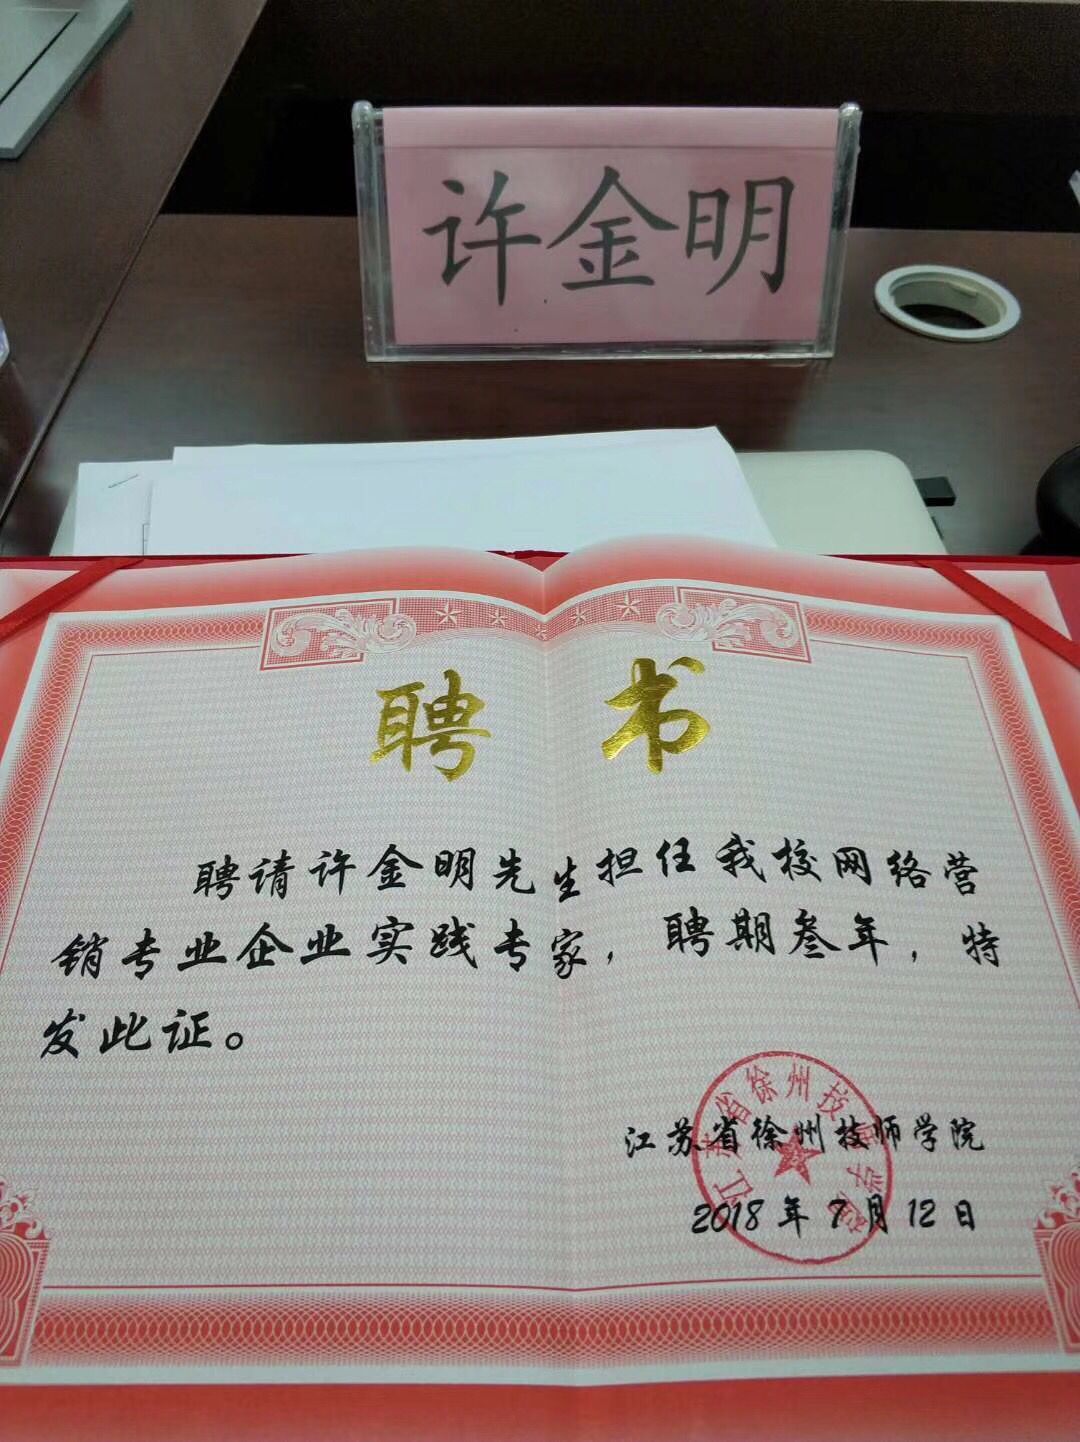 许金明
聘书
聘请许金明先生担任我校网络营
销专业企业实践专家，聘期叁年，特
发此证。
江苏省徐州技师学院
2018年7月12日
江苏省徐州技师学院